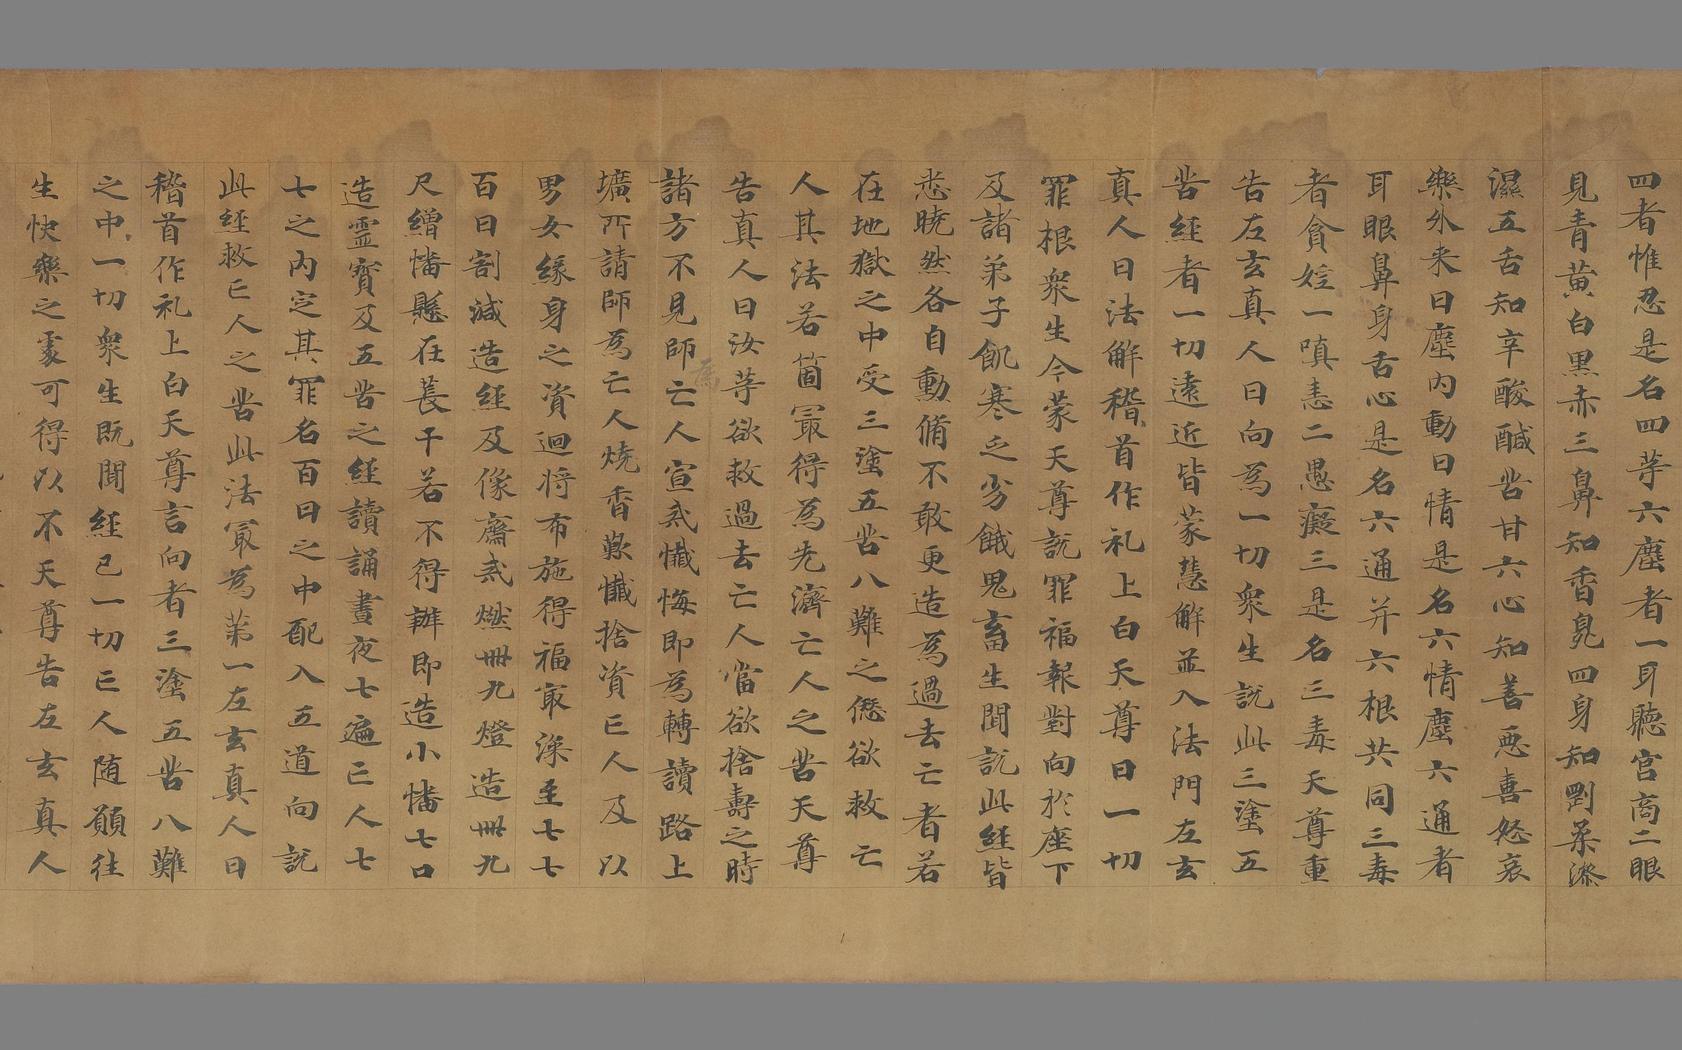 四者惟忍是名四等六塵者一耳聽宮商二眼
見青黃白黑赤三鼻知香臭四身知剛柔澁
濕五舌知辛酸醎苦甘六心知善惡喜怒哀
樂外来曰塵內動曰情是名六情塵六通者
耳眼鼻身舌心是名六通并六根共同三毒
者貪婬一嗔恚二愚癡三是名三毒天尊重
告左玄真人曰向為一切衆生說此三塗五
苦經者一切遠近皆蒙慧解並入法門左玄
真人曰法解稽首作礼上白天尊曰一切
罪根衆生今蒙天尊說罪福報對向於座下
及諸弟子飢寒乏劣餓鬼畜生聞說此經皆
悉曉然各自動脩不敢更造為過去亡者若
在地獄之中受三塗五苦八難之愆欲救亡
人其法若箇冣得為先濟亡人之苦天尊
告真人曰汝等欲救過去亡人當欲捨壽之時
諸方不見師亡人宣忒懺悔即為轉讀路上
為
壙所請師為亡人燒香歎懺捨資亡人及以
男女緣身之資迴將布施得福冣深至七七
百日割減造經及像齋忒燃卌九燈造卌九
尺繒幡懸在長干若不得辦即造小幡七口
造靈寶及五苦之經讀誦晝夜七遍亡人七
七之內定其罪名百日之中配入五道向說
此經救亡人之苦此法冣為第一左玄真人曰
稽首作礼上白天尊言向者三塗五苦八難
之中一切衆生既聞經已一切亡人随願往
生快樂之處可得以不天尊告左玄真人